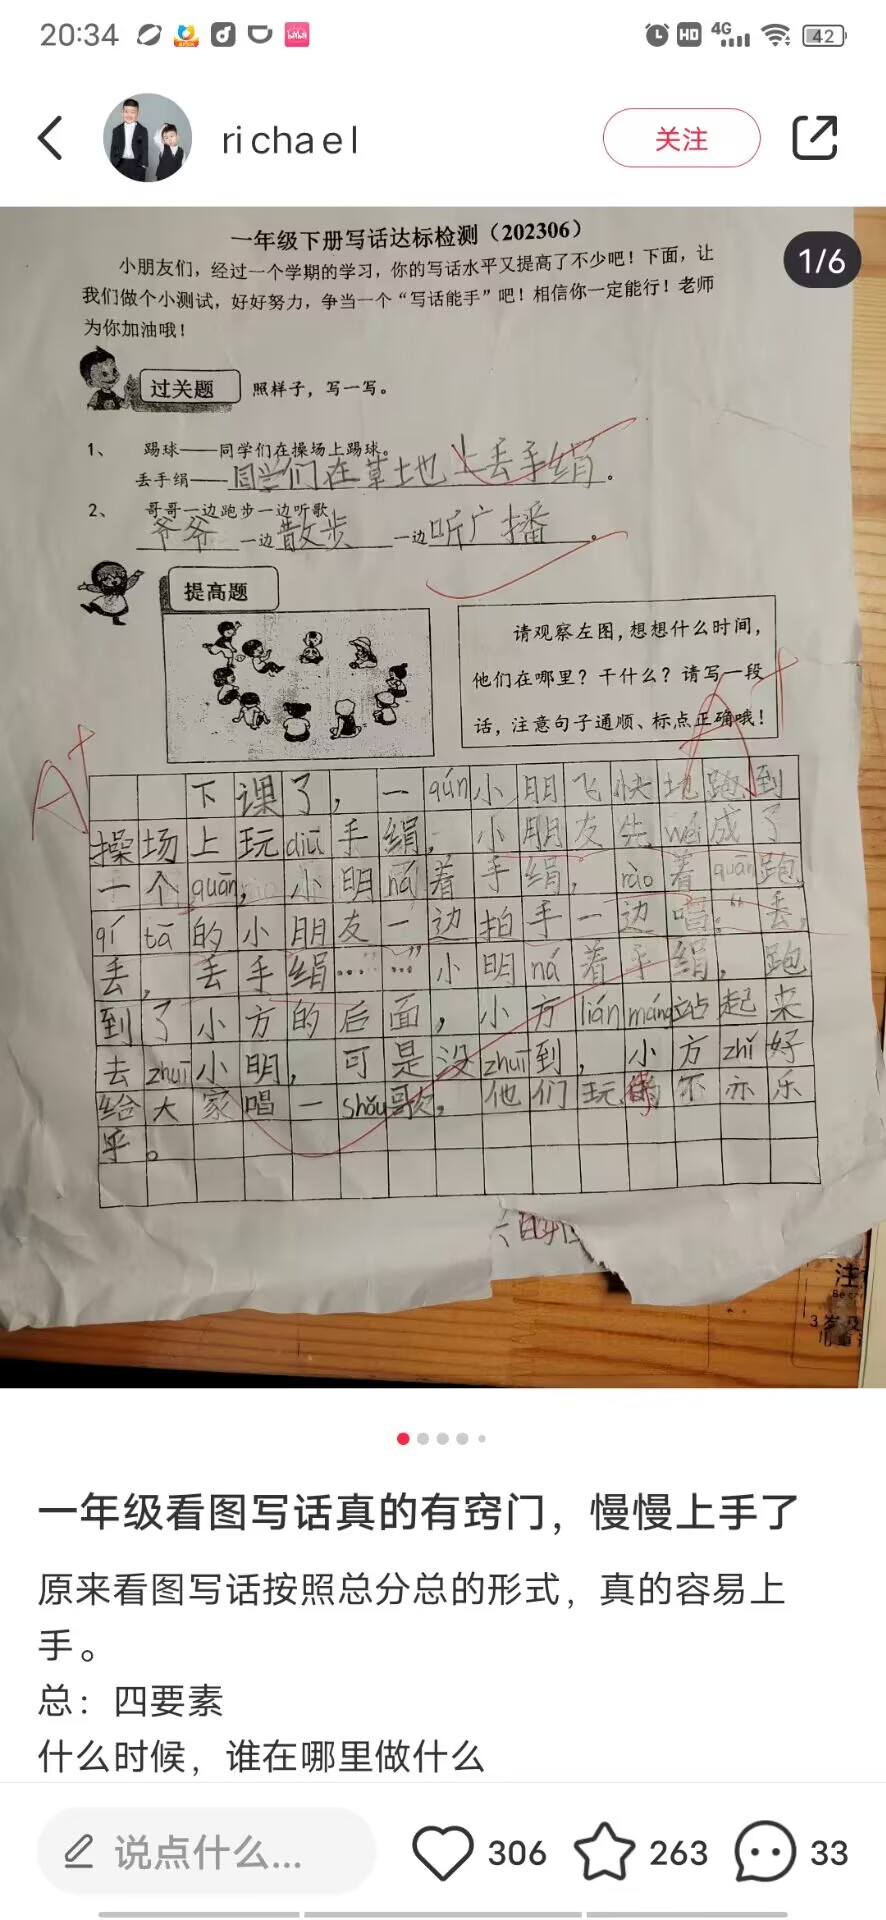 20:34
HD 4G 42
richael
关注
1/6
一年级下册写话达标检测（202306）
小朋友们，经过一个学期的学习，你的写话水平又提高了不少吧！下面，让
我们做个小测试，好好努力，争当一个“写话能手”吧！相信你一定能行！老师
为你加油哦！
过关题 照样子，写一写。
1、 踢球——同学们在操场上踢球。
丢手绢——同学们在草地上丢手绢。
2、 哥哥一边跑步一边听歌
爷爷一边散步一边听广播。
提高题
请观察左图，想想什么时间，
他们在哪里？干什么？请写一段
话，注意句子通顺、标点正确哦！
A+
A+
下课了，一qún小朋飞快地跑到
操场上玩diū手绢，小朋友先wéi成了
一个quān，小明ná着手绢，rào着quān跑，
qí tā的小朋友一边拍手一边唱：“丢，
丢，丢手绢……”小明ná着手绢，跑
到了小方的后面，小方lián máng站起来
去zhuī小明，可是没zhuī到，小方zhǐ好
给大家唱一shǒu歌，他们玩得不亦乐
乎。
注
3岁及
一年级看图写话真的有窍门，慢慢上手了
原来看图写话按照总分总的形式，真的容易上
手。
总：四要素
什么时候，谁在哪里做什么
说点什么... 306 263 33